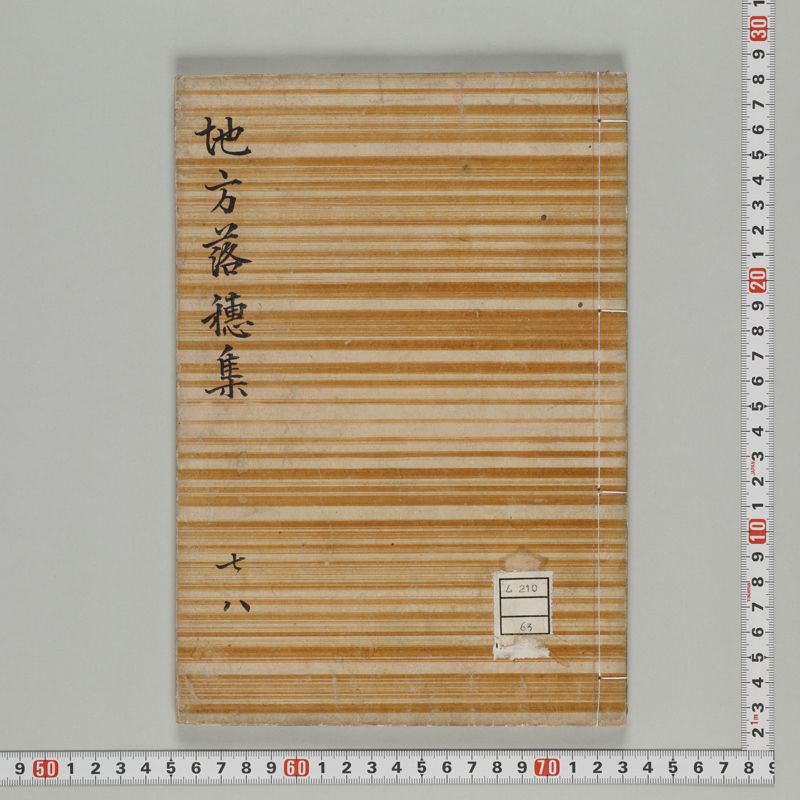 地方落穂集
七八
ム 210
63
30
9
8
7
6
5
4
3
2
1
20
9
8
7
6
5
4
3
JAPAN
2
1
10
9
8
7
6
5
4
3
1m
2
9 50 1 2 3 4 5 6 7 8 9 60 1 2 3 4 5 6 7 8 9 70 1 2 3 4 5 6 7 8 9